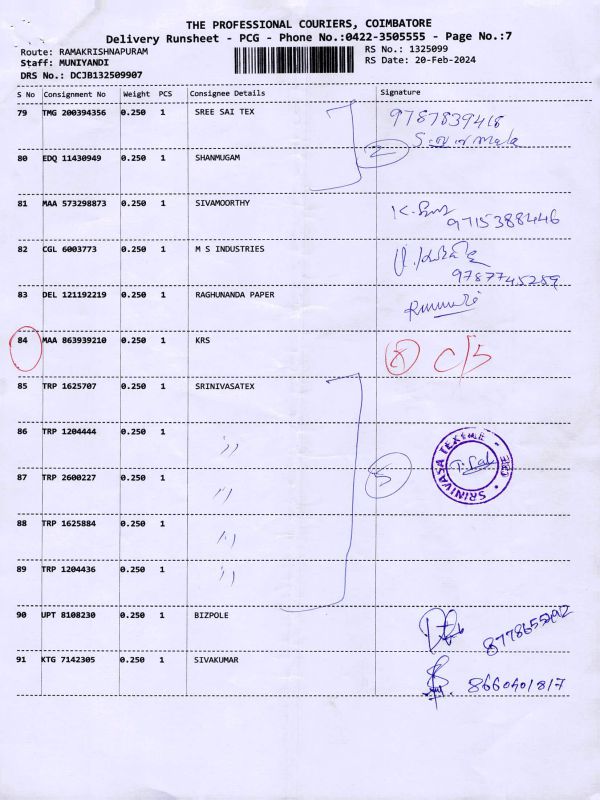 THE PROFESSIONAL COURIERS, COIMBATORE
Delivery Runsheet - PCG - Phone No.:0422-3505555 - Page No.:7
Route: RAMAKRISHNAPURAM RS No.: 1325099
Staff: MUNIYANDI RS Date: 20-Feb-2024
DRS No.: DCJB132509907
S No Consignment No Weight PCS Consignee Details Signature
79 TMG 200394356 0.250 1 SREE SAI TEX 9787839418
2
80 EDQ 11430949 0.250 1 SHANMUGAM
81 MAA 573298873 0.250 1 SIVAMOORTHY 9715388446
82 CGL 6003773 0.250 1 M S INDUSTRIES 9787745289
83 DEL 121192219 0.250 1 RAGHUNANDA PAPER
84 MAA 863939210 0.250 1 KRS C/S
85 TRP 1625707 0.250 1 SRINIVASATEX
86 TRP 1204444 0.250 1 〃
SRINIVASA TEXTILE
87 TRP 2600227 0.250 1 〃 5
88 TRP 1625884 0.250 1 〃
89 TRP 1204436 0.250 1 〃
90 UPT 8108230 0.250 1 BIZPOLE
91 KTG 7142305 0.250 1 SIVAKUMAR